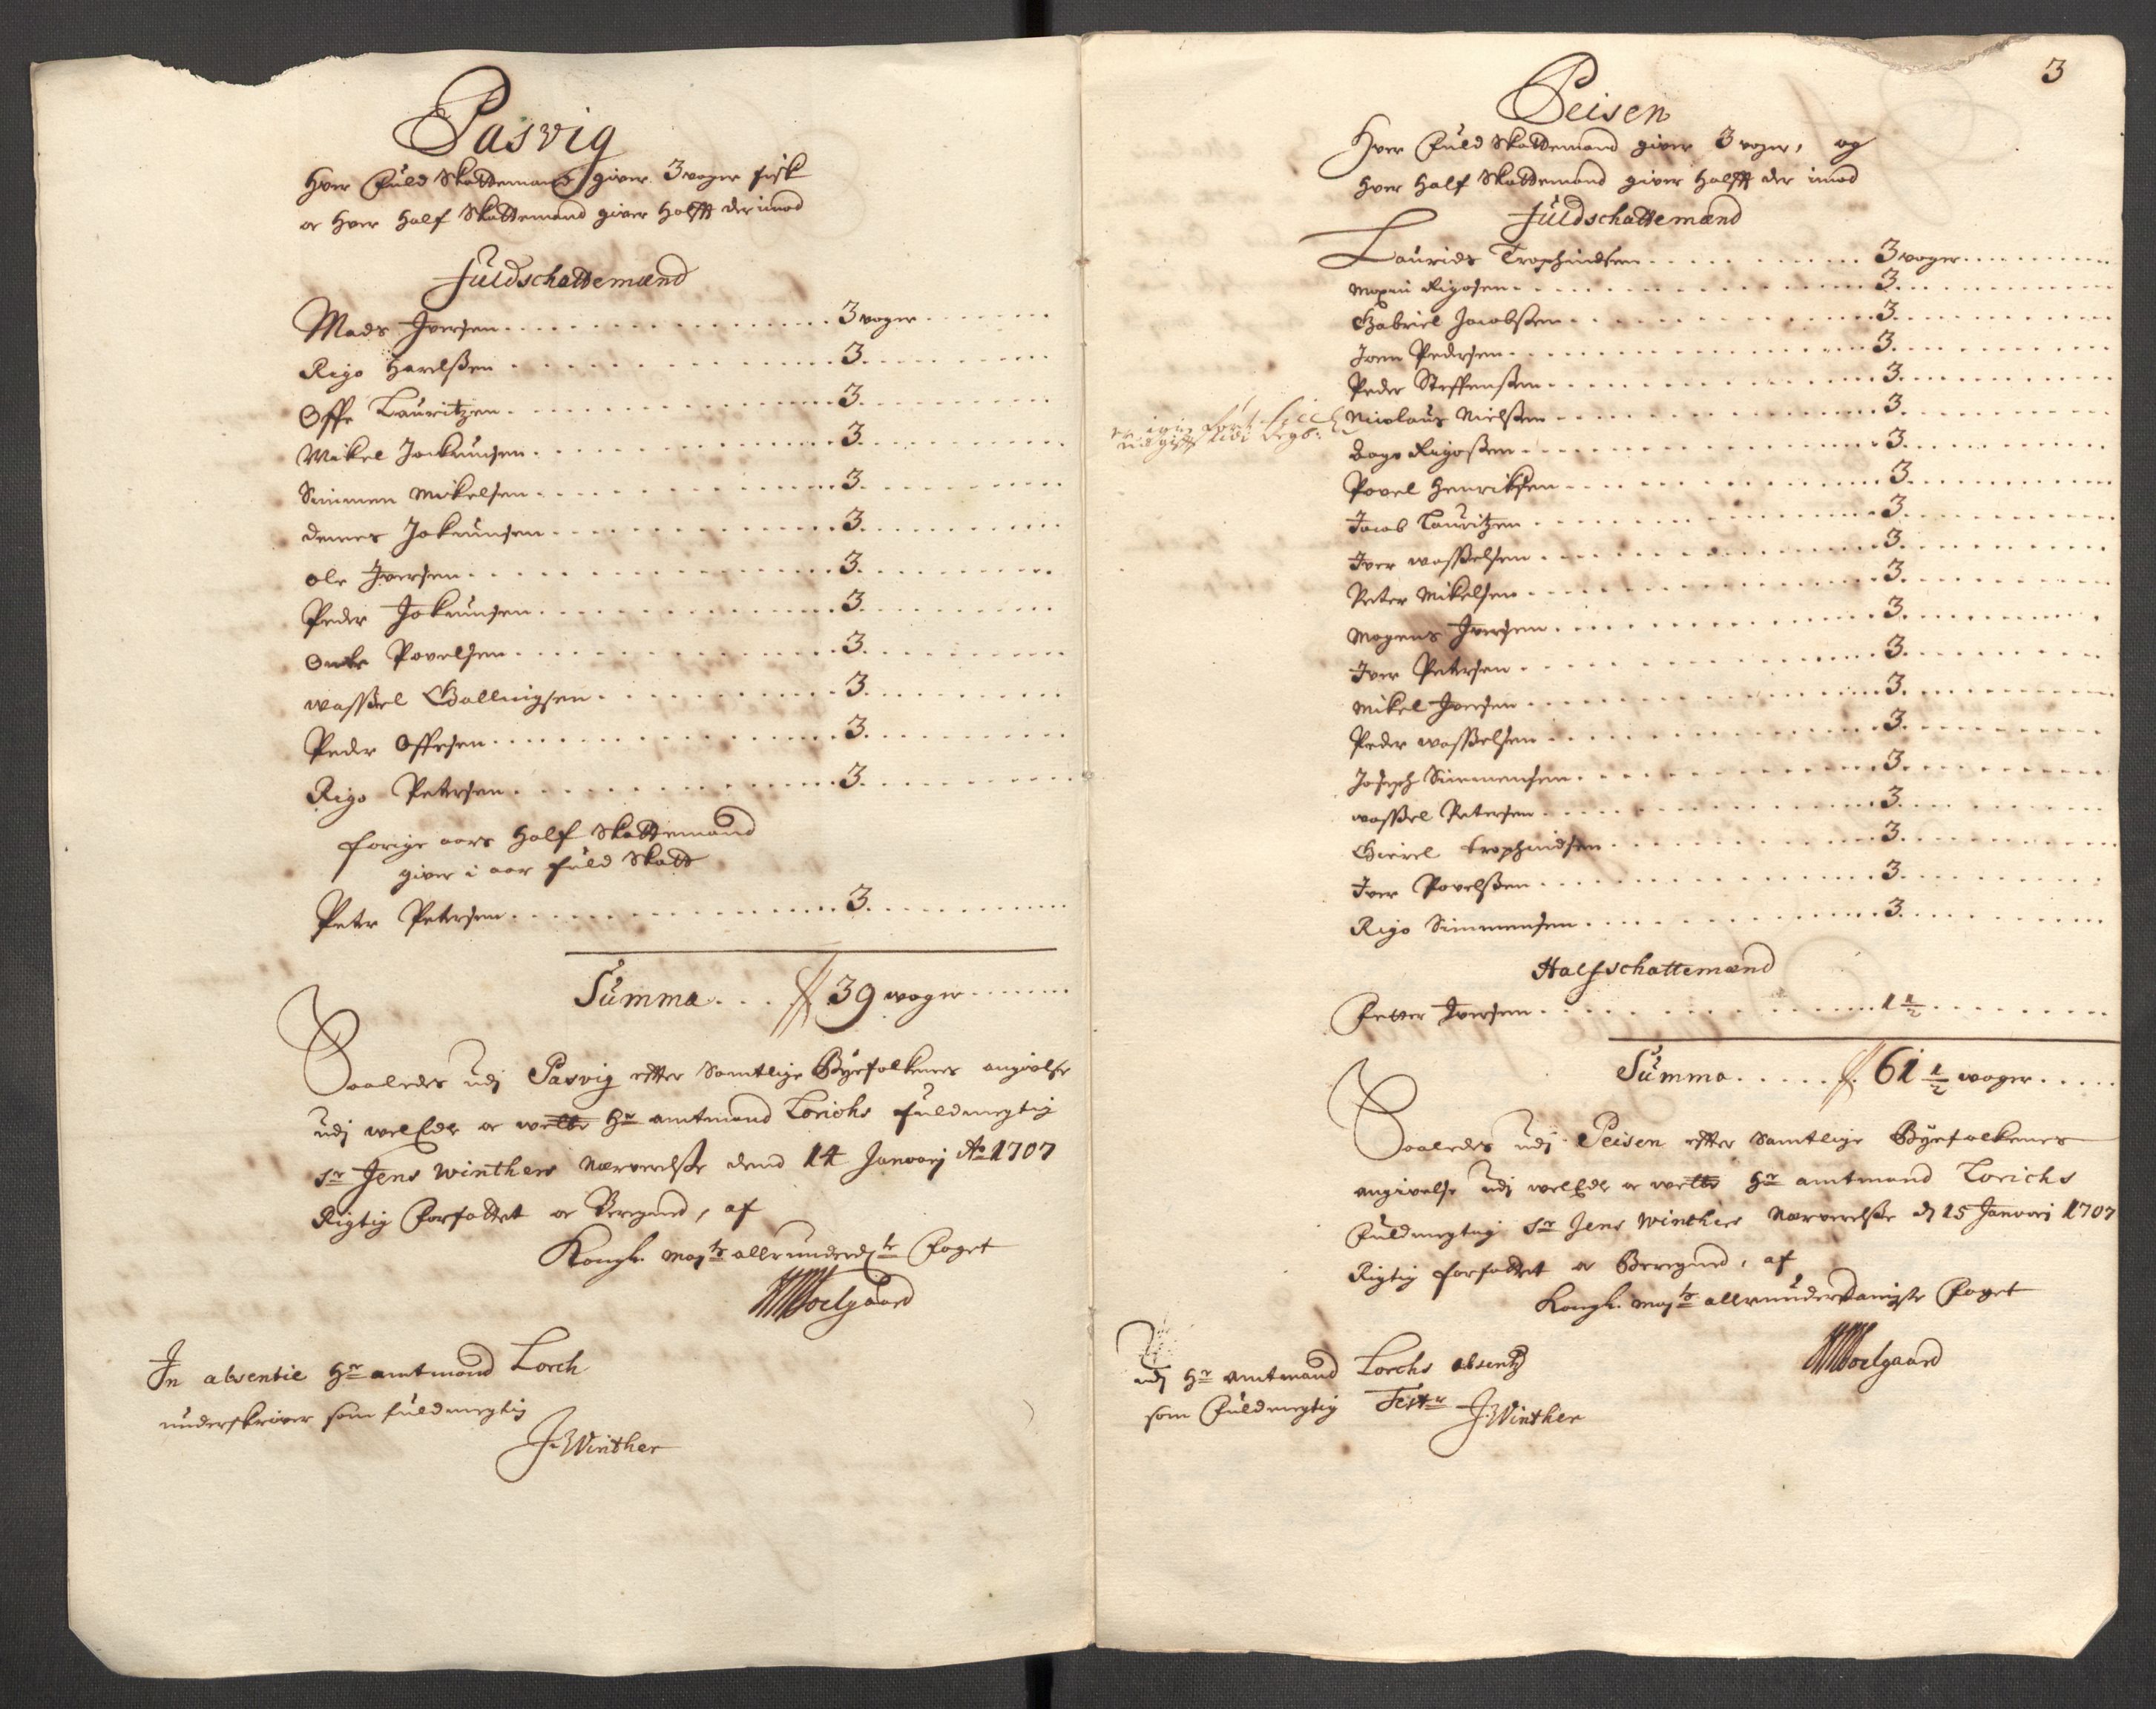 Pasvig
Hver Fuld Skattemand giver 3 voger fisk
oc Hver Half Skattemand giver Halfft der imod
Fuldschattemænd
Mads Iversen 3 voger
Rigo Harelssen 3
Offe Lauritzen 3
Mikel Jockumsen 3
Simmen Mikelsen 3
Jokumsen 3
Ole Iversen 3
Peder Jokumsen 3
Povelsen 3
wassel Gallnigsen 3
Peder Offesen 3
Rigo Petersen 3
forige aars Half Skattemand
giver i aar fuld Skatt
Peter Petersen 3
Summa 39 voger
Saaledes udj Pasvig efter Samtlige Byefolkenes angivelse
udj welEdle oc welbr Hr amtmand Lorichs fuldmegtig
Sr Jens Winthers Nærverelse dend 14 Januarj Ao 1707
Rigtig Forfattet oc Beregned, af
Kongl. mayts allerunderdte Foget
Soelgaard
In absentie Hr amtmand Lorch
underskriver som fuldmegtig
J. Winther
3
Peisen
Hver Fuld Skattemand giver 3 voger, og
Hver Half Skattemand giver Halfft der imod
Fuldschattemænd
Laurids Trophindsen 3 voger
Rigosen 3
Gabriel Jacobsen 3
Joen Pedersen 3
Peder Steffensen 3
Nicolaus Nielsen 3
Rigossen 3
Povel Henriksen 3
Jacob Lauritzen 3
Iver wasselsen 3
Peter Mikelsen 3
Mogens Iversen 3
Iver Petersen 3
Mikel Iversen 3
Peder wasselsen 3
Joseph Simmensen 3
wassel Petersen 3
trophindsen 3
Iver Povelssen 3
Rigo Simmensen 3
Halfschattemænd
Petter Iversen 1 1/2
Summa 61 1/2 woger
Saaledes udj Peisen efter Samtlige Byefolkenes
angivelse udj welEdle oc welbr Hr amtmand Lorichs
Fuldmegtig Sr Jens Winthers Nærverelse d 15 Januarj 1707
Rigtig forfattet oc Beregned, af
Kongl. mayts allerunderdanigste Foget
Soelgaard
udj Hr Amtmand Lorchs absentz
som Fuldmegtig Test.r J. Winther